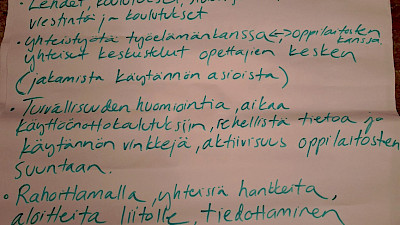 • Lehdet, koulutukset,
viestintä ja koulutukset
• yhteistyötä työelämänkanssa <-> oppilaitosten
kanssa.
yhteiset keskustelut opettajien kesken
(jakamista käytännön asioista)
• Turvallisuuden huomiointia, aikaa
käyttöönottokoulutuksiin, rehellistä tietoa ja
käytännön vinkkejä, aktiivisuus oppilaitosten
suuntaan.
• Rahoittamalla, yhteisiä hankkeita,
aloitteita liitolle, tiedottaminen